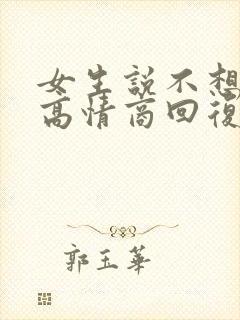 女生説不想
高情商回復
郭玉華